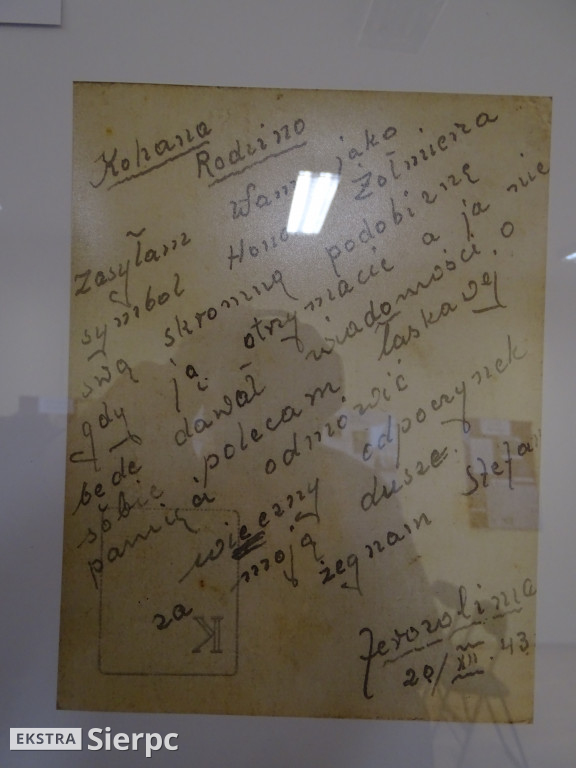 Kohana
Rodzino
Zasyłam Wam jako
symbol Hono Żołnierza
swą skromną podobiznę
gdy ją otrzymacie a ja nie
bede dawał wiadomości o
sobie polecam łaskawej
pamięci odmówić
wieczny odpoczynek
za moją dusze.
żegnam Stefan
Jerozolima
20/XII 43
K
EKSTRA Sierpc